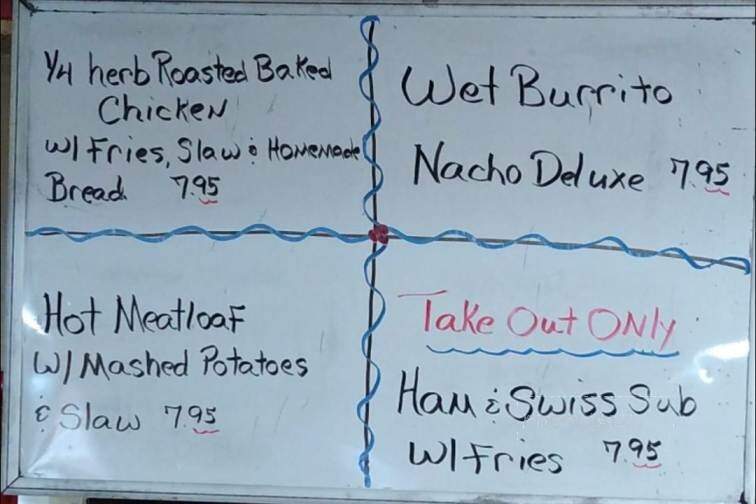 1/4 herb Roasted Baked
Chicken
w/ Fries, Slaw & Homemade
Bread 7.95
Wet Burrito
Nacho Deluxe 7.95
Hot Meatloaf
W/ Mashed Potatoes
& Slaw 7.95
Take Out ONly
Ham & Swiss Sub
W/ Fries 7.95